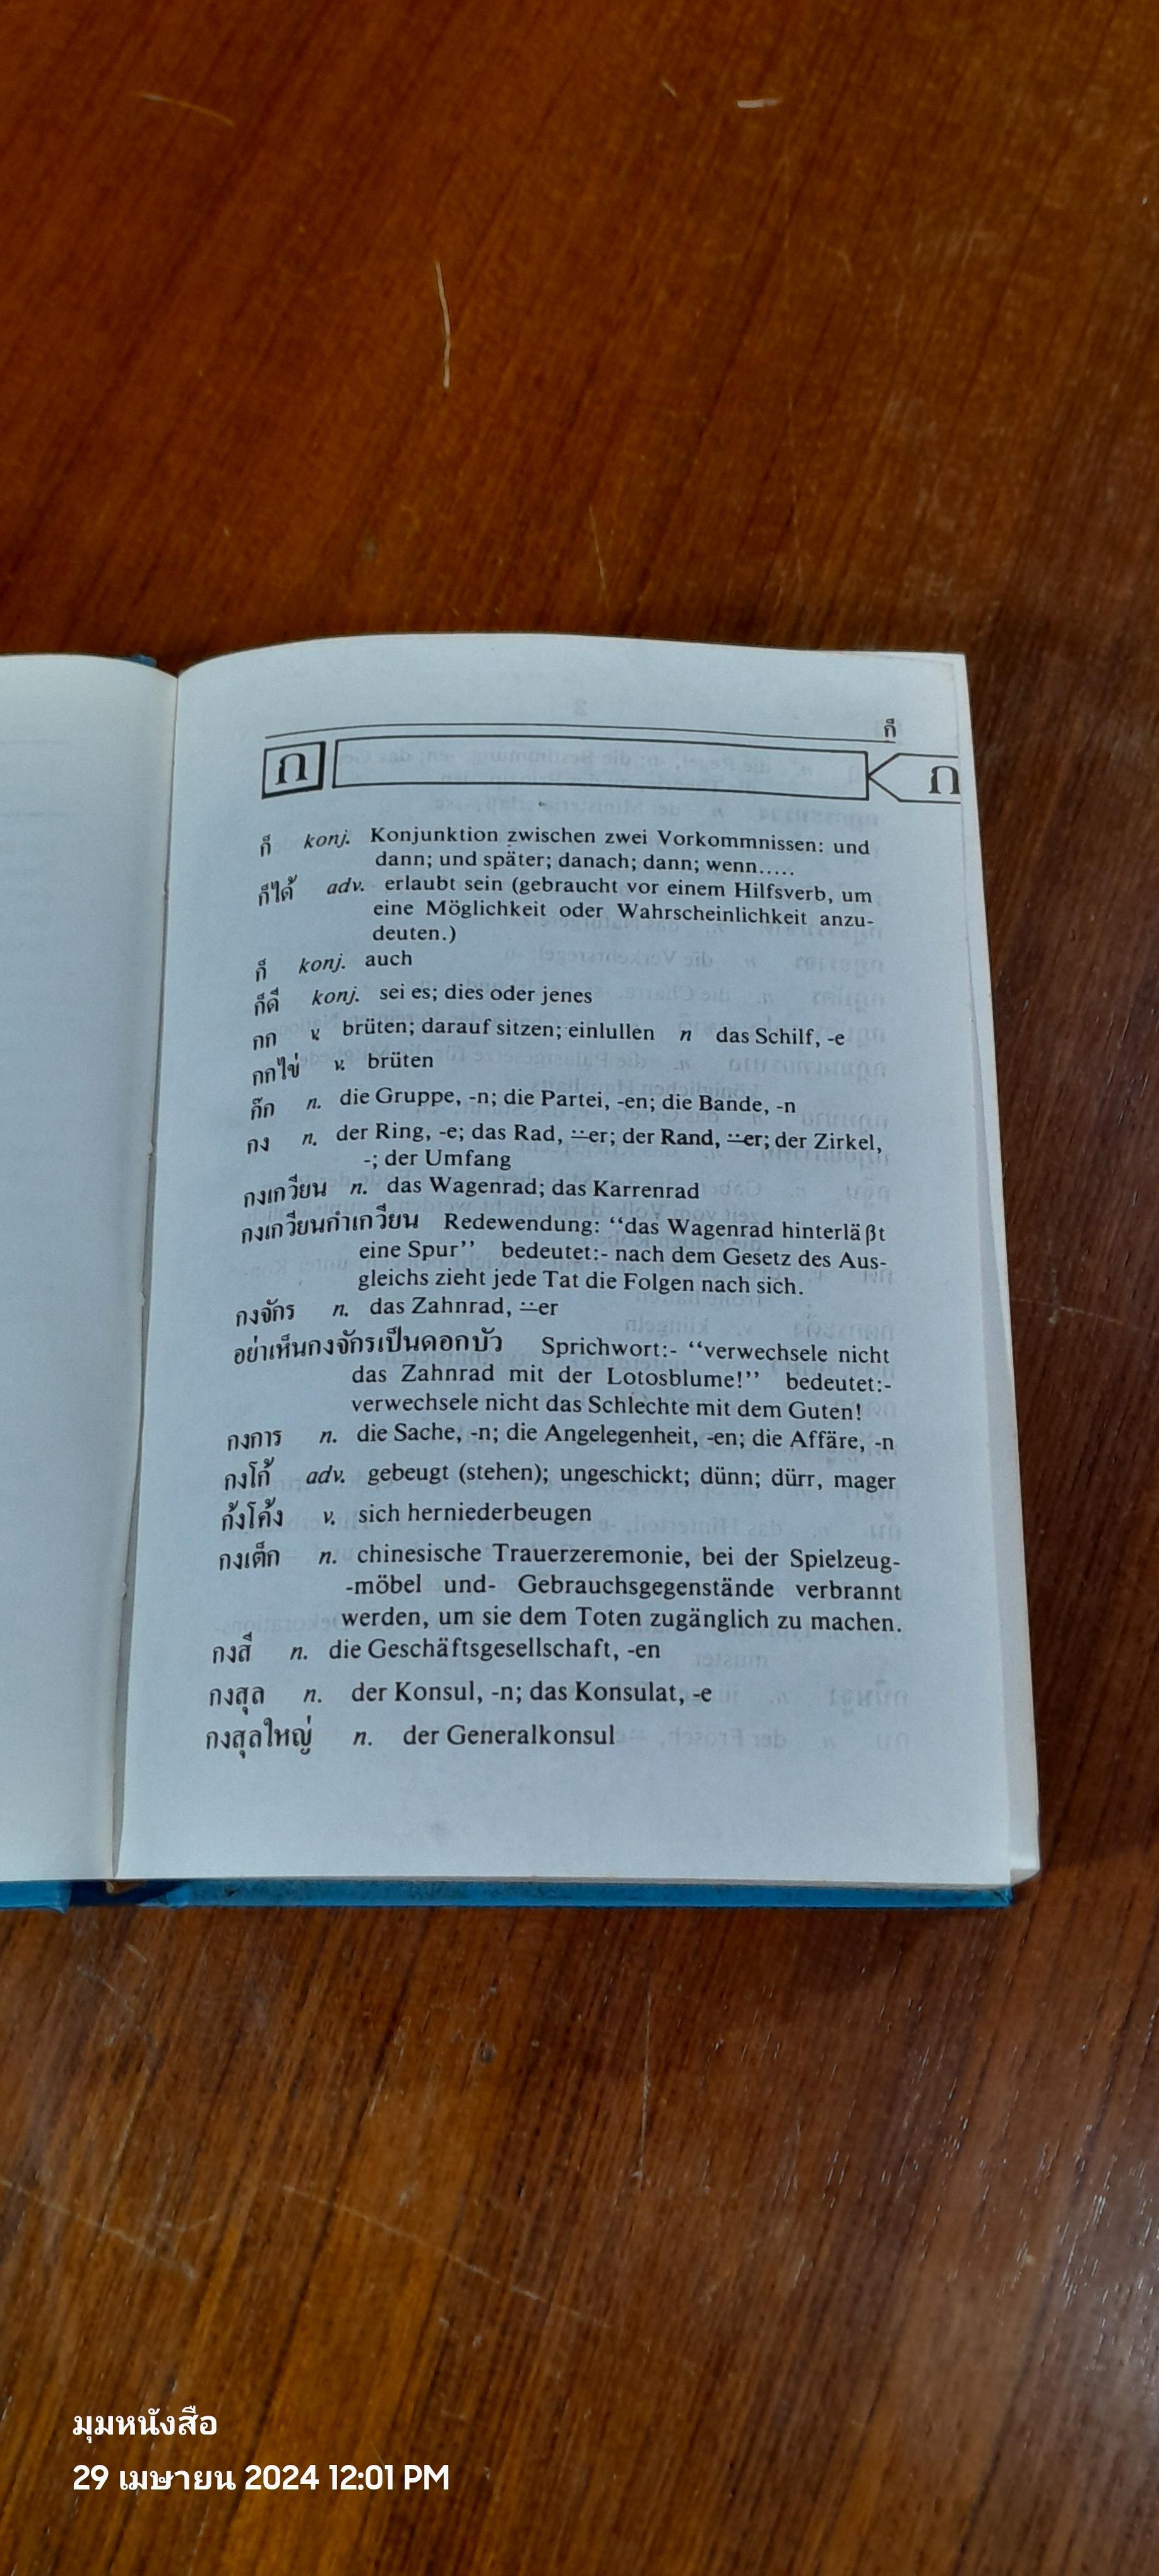 ก็
ก ก
ก็ konj. Konjunktion zwischen zwei Vorkommnissen: und
dann; und später; danach; dann; wenn.....
ก็ได้ adv. erlaubt sein (gebraucht vor einem Hilfsverb, um
eine Möglichkeit oder Wahrscheinlichkeit anzu-
deuten.)
ก็ konj. auch
ก็ดี konj. sei es; dies oder jenes
กก v. brüten; darauf sitzen; einlullen n das Schilf, -e
กกไข่ v. brüten
ก๊ก n. die Gruppe, -n; die Partei, -en; die Bande, -n
กง n. der Ring, -e; das Rad, ⸚er; der Rand, ⸚er; der Zirkel,
-; der Umfang
กงเกวียน n. das Wagenrad; das Karrenrad
กงเกวียนกำเกวียน Redewendung: “das Wagenrad hinterläßt
eine Spur” bedeutet:- nach dem Gesetz des Aus-
gleichs zieht jede Tat die Folgen nach sich.
กงจักร n. das Zahnrad, ⸚er
อย่าเห็นกงจักรเป็นดอกบัว Sprichwort:- “verwechsele nicht
das Zahnrad mit der Lotosblume!” bedeutet:-
verwechsele nicht das Schlechte mit dem Guten!
กงการ n. die Sache, -n; die Angelegenheit, -en; die Affäre, -n
กงโก้ adv. gebeugt (stehen); ungeschickt; dünn; dürr, mager
ก้งโค้ง v. sich herniederbeugen
กงเต็ก n. chinesische Trauerzeremonie, bei der Spielzeug-
-möbel und- Gebrauchsgegenstände verbrannt
werden, um sie dem Toten zugänglich zu machen.
กงสี n. die Geschäftsgesellschaft, -en
กงสุล n. der Konsul, -n; das Konsulat, -e
กงสุลใหญ่ n. der Generalkonsul
มุมหนังสือ
29 เมษายน 2024 12:01 PM